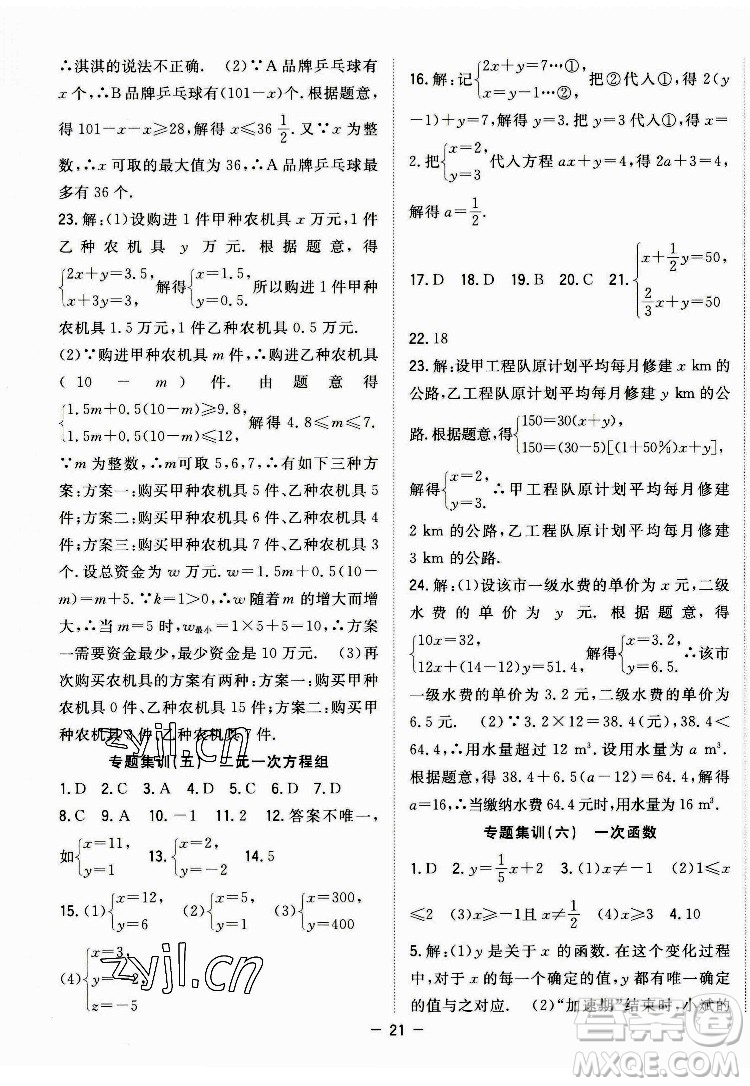 ∴淇淇的说法不正确. (2)∵A 品牌乒乓球有
x 个,∴B 品牌乒乓球有(101-x)个. 根据题意,
得 101-x-x≥28,解得 x≤36 1/2. 又∵x 为整
数,∴x 可取的最大值为 36,∴A 品牌乒乓球最
多有 36 个.
23. 解:(1)设购进 1 件甲种农机具 x 万元,1 件
乙种农机具 y 万元. 根据题意,得
{2x+y=3.5, x+3y=3, 解得{x=1.5, y=0.5. 所以购进 1 件甲种
农机具 1.5 万元,1 件乙种农机具 0.5 万元.
(2)∵购进甲种农机具 m 件,∴购进乙种农机具
(10-m)件. 由题意得
{1.5m+0.5(10-m)≥9.8, 1.5m+0.5(10-m)≤12, 解得 4.8≤m≤7.
∵m 为整数,∴m 可取 5,6,7,∴有如下三种方
案:方案一:购买甲种农机具 5 件、乙种农机具 5
件;方案二:购买甲种农机具 6 件、乙种农机具 4
件;方案三:购买甲种农机具 7 件、乙种农机具 3
件. 设总资金为 w 万元,w=1.5m+0.5(10-
m)=m+5.∵k=1>0,∴w 随着 m 的增大而增
大,∴当 m=5 时,w最小=1×5+5=10,∴方案
一需要资金最少,最少资金是 10 万元. (3)再
次购买农机具的方案有两种:方案一:购买甲种
农机具 0 件、乙种农机具 15 件;方案二:购买甲种
农机具 3 件、乙种农机具 7 件.
专题集训(五) 二元一次方程组
1. D 2. D 3. A 4. C 5. C 6. D 7. D
8. C 9. A 10. -1 11. 2 12. 答案不唯一,
如{x=11, y=1 13. {x=4, y=-2 14. 5
15. (1){x=12, y=6 (2){x=5, y=1 (3){x=300, y=400
(4){x=3, y=-2 z=-5
16. 解:记{2x+y=7…①, x=y-1…②, 把②代入①,得 2(y
-1)+y=7. 解得 y=3. 把 y=3 代入②,得 x=
2. 把{x=2, y=3 代入方程 ax+y=4,得 2a+3=4,
解得 a=1/2.
17. D 18. D 19. B 20. C 21. {x+1/2y=50, 2/3x+y=50
22. 18
23. 解:设甲工程队原计划平均每月修建 x km 的
公路,乙工程队原计划平均每月修建 y km 的公
路. 根据题意,得{150=30(x+y), 150=(30-5)[(1+50%)x+y],
解得{x=2, y=3. ∴甲工程队原计划平均每月修建
2 km 的公路,乙工程队原计划平均每月修建
3 km 的公路.
24. 解:(1)设该市一级水费的单价为 x 元,二级
水费的单价为 y 元. 根据题意,得
{10x=32, 12x+(14-12)y=51.4, 解得{x=3.2, y=6.5. ∴该市
一级水费的单价为 3.2 元,二级水费的单价为
6.5 元. (2)∵3.2×12=38.4(元),38.4<
64.4,∴用水量超过 12 m³. 设用水量为 a m³.
根据题意,得 38.4+6.5(a-12)=64.4,解得
a=16,∴当缴纳水费 64.4 元时,用水量为 16 m³.
专题集训(六) 一次函数
1. D 2. y=1/5x+2 3. (1)x≠-1 (2)1≤x
≤2 (3)x≥-1且x≠1/2 4. 10
5. 解:(1)y 是关于 x 的函数. 在这个变化过程
中,对于 x 的每一个确定的值,y 都有唯一确定
的值与之对应. (2)“加速期”结束时,小斌的
— 21 —
zyjl.cn
zyjl.cn
答案圈
MXQE.COM